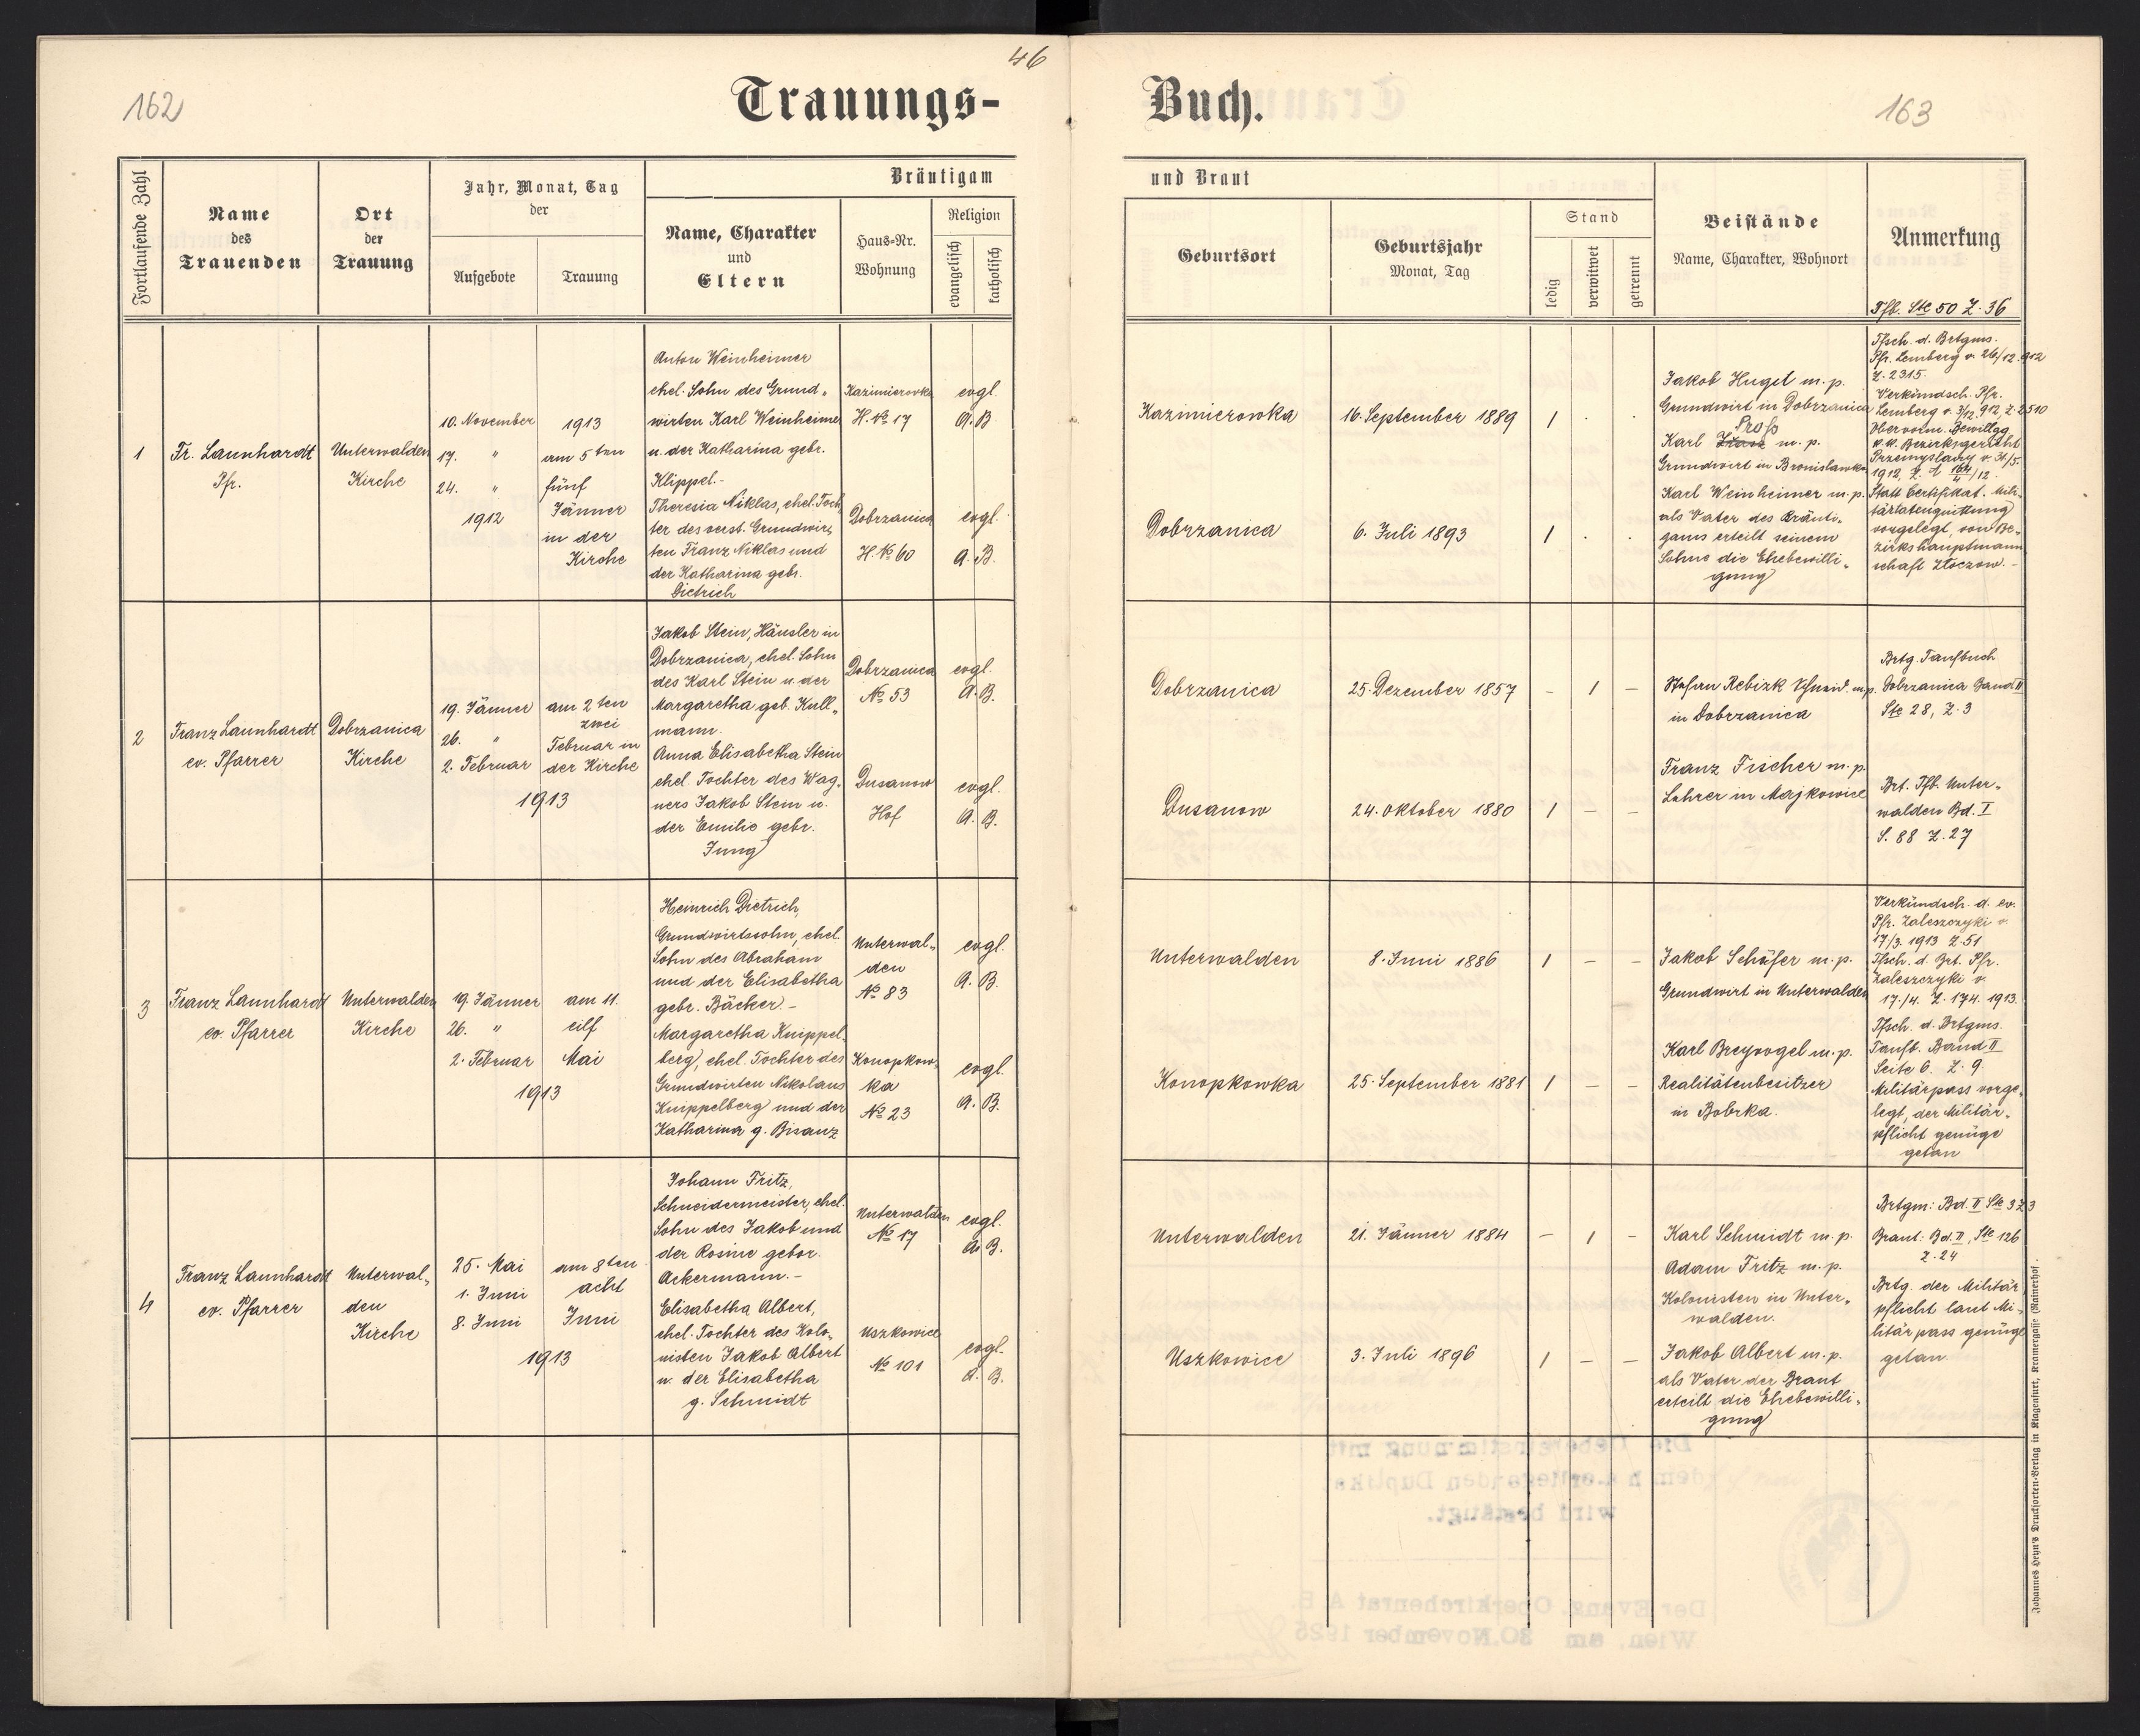 46
162
Trauungs-
Buch.
163
Fortlaufende Zahl
Name
des
Trauenden
Ort
der
Trauung
Jahr, Monat, Tag
der
Aufgebote
Trauung
Bräutigam
Name, Charakter
und
Eltern
Haus-Nr.
Wohnung
Religion
evangelisch
katholisch
und Braut
Geburtsort
Geburtsjahr
Monat, Tag
Stand
ledig
verwitwet
getrennt
Beistände
Name, Charakter, Wohnort
Anmerkung
Tfb. Ste 50 Z. 36
1
Fr. Launhardt
Pfr.
Unterwalden
Kirche
10. November
17. "
24. "
1912
1913
am 5ten
fünf
Jänner
in der
Kirche
Anton Weinheimer
ehel. Sohn des Grund-
wirten Karl Weinheimer
u. der Katharina gebr.
Klippel.-
Theresia Niklas, ehel. Toch-
ter des verst. Grundwir-
ten Franz Niklas und
der Katharina gebr.
Dietrich
Kazimierowka
H. No 17
Dobrzanica
H. No 60
evgl.
A. B.
evgl.
A. B.
Kazimierowka
16. September 1889
1 . .
Dobrzanica
6. Juli 1893
1 . .
Jakob Hugel m. p.
Grundwirt in Dobrzanica
Pross
Karl m. p.
Grundwirt in Bronislawka
Karl Weinheimer m. p.
als Vater des Bräuti-
gams erteilt seinem
Sohne die Ehebewilli-
gung
Tfsch. d. Brtgms.
Pfr. Lemberg v. 26/12. 912
Z. 2315.
Verkündsch. Pfr.
Lemberg v. 3/12. 912, Z. 2510
Obervorm. Bewillgg
k. k. Bezirksgericht
Przemyslany v. 31/5.
1912, Z.
Statt Certifikat. Mili-
tärtaxenquittung
vorgelegt, von Be-
zirkshauptmann
schaft Zloczow. -
2
Franz Launhardt
ev. Pfarrer
Dobrzanica
Kirche
19. Jänner
26. "
2. Februar
1913
am 2ten
zwei
Februar in
der Kirche
Jakob Stein, Häusler in
Dobrzanica, ehel. Sohn
des Karl Stein u. der
Margaretha geb. Kull-
mann.
Anna Elisabetha Stein
ehel. Tochter des Wag-
ners Jakob Stein u.
der Emilie gebr.
Jung
Dobrzanica
No 53
Dusanow
Hof
evgl.
A. B.
evgl.
A. B.
Dobrzanica
25. Dezember 1857
- 1 -
Dusanow
24. Oktober 1880
1 - -
Stefan Rebizk Schneid. m. p.
in Dobrzanica
Franz Fischer m. p.
Lehrer in Majkowice
Brtg. Taufbuch
Dobrzanica Band II
Ste 28, Z. 3
Brt. Tfb. Unter-
walden Bd. I
S. 88 Z. 27
3
Franz Launhardt
ev. Pfarrer
Unterwalden
Kirche
19. Jänner
26. "
2. Februar
1913
am 11.
eilf
Mai
Heinrich Dietrich,
Grundwirtssohn, ehel.
Sohn des Abraham
und der Elisabetha
gebr. Bäcker. -
Margaretha Knippel-
berg, ehel. Tochter des
Grundwirten Nikolaus
Knippelberg und der
Katharina g. Bisanz
Unterwal-
den
No 83
Konopkow-
ka
No 23
evgl.
A. B.
evgl.
A. B.
Unterwalden
8. Juni 1886
1 - -
Konopkowka
25. September 1881
1 - -
Jakob Schäfer m. p.
Grundwirt in Unterwalden
Karl Breyvogel m. p.
Realitätenbesitzer
in Bobrka.
Verkündsch. d. ev.
Pfr. Zaleszczyki v.
17/3. 1913 Z. 51
Tfsch. d. Brt. Pfr.
Zaleszczyki v
17./4. Z. 174. 1913.
Tfsch. d. Brtgms.
Taufb. Band II
Seite 6. Z. 9
Militärpass vorge-
legt, der Militär-
pflicht genüge
getan
4
Franz Launhardt
ev. Pfarrer
Unterwal-
den
Kirche
25. Mai
1. Juni
8. Juni
1913
am 8ten
acht
Juni
Johann Fritz,
Schneidermeister, ehel.
Sohn des Jakob und
der Rosine gebor.
Ackermann. -
Elisabetha Albert,
ehel. Tochter des Kolo-
nisten Jakob Albert
u. der Elisabetha
g. Schmidt
Unterwalden
No 17
Uszkowice
No 101
evgl.
A. B.
evgl.
A. B.
Unterwalden
21. Jänner 1884
- 1 -
Uszkowice
3. Juli 1896
1 - -
Karl Schmidt m. p.
Adam Fritz m. p.
Kolonisten in Unter-
walden.
Jakob Albert m. p.
als Vater der Braut
erteilt die Ehebewilli-
gung
Brtgm: Bd. II Ste 3 Z 3
Braut: Bd. II, Ste 126
Z. 24
Brtg. der Militär
pflicht laut Mi-
litärpass genüge
getan.
Johannes Heyn's Drucksorten-Verlag in Klagenfurt, Kramergasse (Rainerhof).